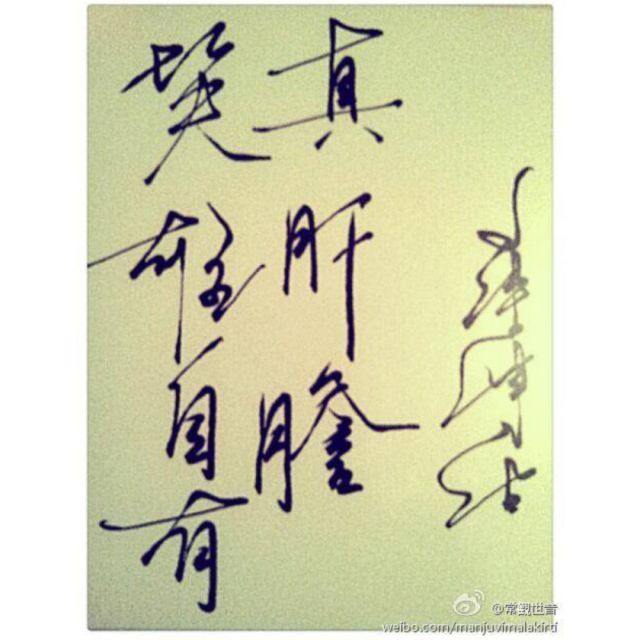 英雄自有
真肝膽
@常觀世音
weibo.com/manjuvimalakirti